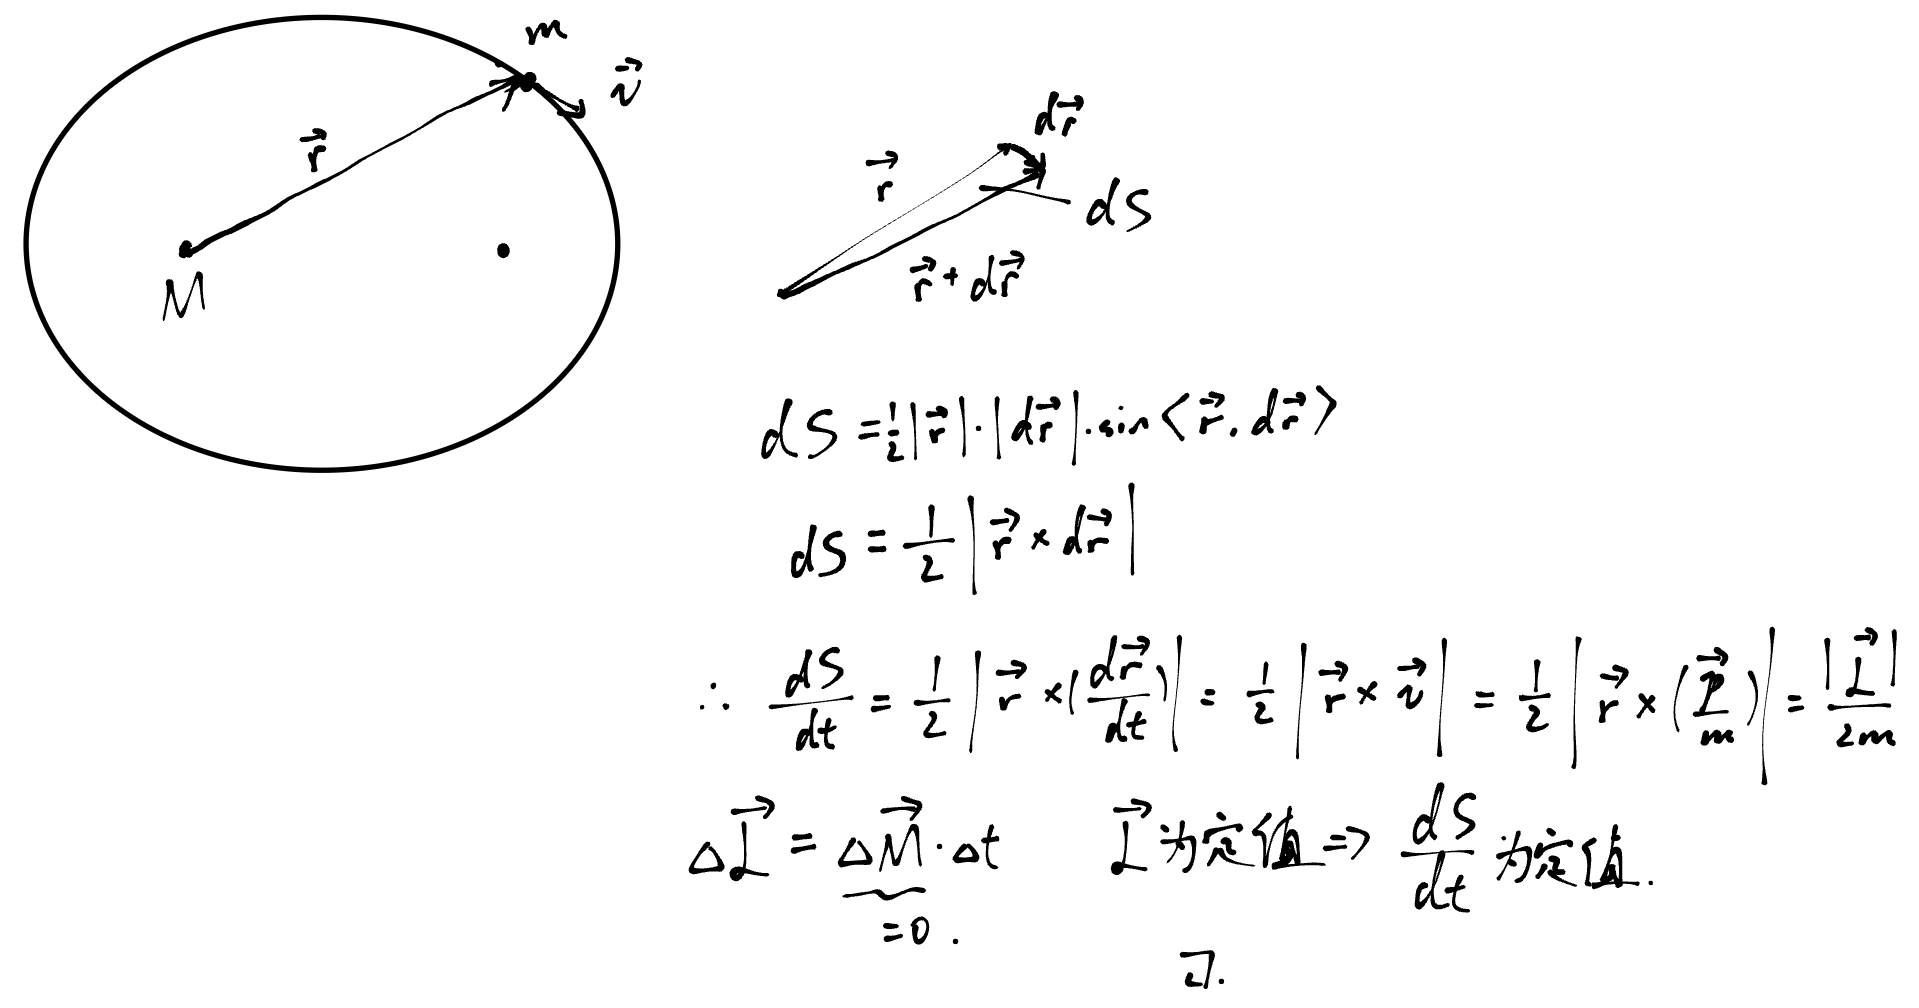 m
v⃗
r⃗
M
dr⃗
r⃗
dS
r⃗ + dr⃗
dS = 1/2 |r⃗|·|dr⃗|·sin<r⃗, dr⃗>
dS = 1/2 |r⃗ × dr⃗|
∴ dS/dt = 1/2 |r⃗ × (dr⃗/dt)| = 1/2 |r⃗ × v⃗| = 1/2 |r⃗ × (p⃗/m)| = |L⃗|/2m
ΔL⃗ = ΔM⃗·Δt L⃗为定值 => dS/dt 为定值.
=0.